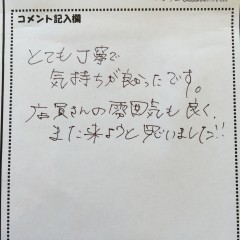 コメント記入欄
とても丁寧で
気持ちが良かったです。
店員さんの雰囲気も良く、
また来ようと思いました!!